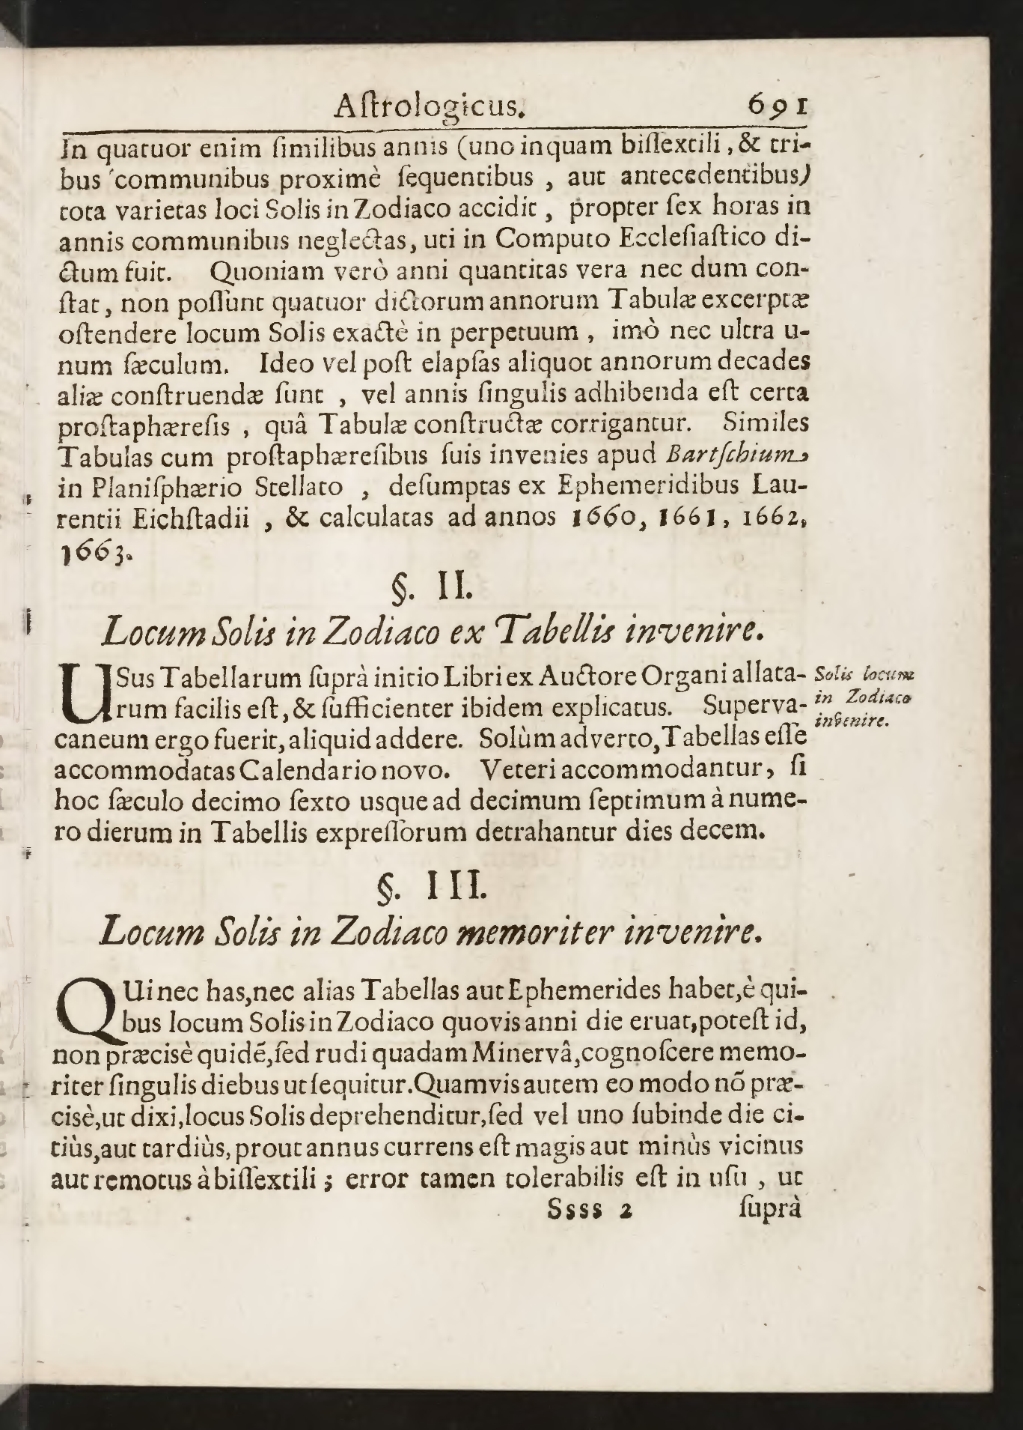 Aſtrologicus. 691
In quatuor enim ſimilibus annis (uno inquam biſſextili, & tri-
bus communibus proximè ſequentibus, aut antecedentibus)
tota varietas loci Solis in Zodiaco accidit, propter ſex horas in
annis communibus neglectas, uti in Computo Eccleſiaſtico di-
ctum fuit. Quoniam verò anni quantitas vera nec dum con-
ſtat, non poſſunt quatuor dictorum annorum Tabulæ excerptæ
oſtendere locum Solis exactè in perpetuum, imò nec ultra u-
num ſæculum. Ideo vel poſt elapſas aliquot annorum decades
aliæ conſtruendæ ſunt, vel annis ſingulis adhibenda eſt certa
proſtaphæreſis, quâ Tabulæ conſtructæ corrigantur. Similes
Tabulas cum proſtaphæreſibus ſuis invenies apud Bartſchium
in Planiſphærio Stellato, deſumptas ex Ephemeridibus Lau-
rentii Eichſtadii, & calculatas ad annos 1660, 1661, 1662,
1663.
§. II.
Locum Solis in Zodiaco ex Tabellis invenire.
USus Tabellarum ſuprà initio Libri ex Auctore Organi allata-
rum facilis eſt, & ſufficienter ibidem explicatus. Superva-
caneum ergo fuerit, aliquid addere. Solùm adverto, Tabellas eſſe
accommodatas Calendario novo. Veteri accommodantur, ſi
hoc ſæculo decimo ſexto usque ad decimum ſeptimum à nume-
ro dierum in Tabellis expreſſorum detrahantur dies decem.
Solis locum
in Zodiaco
invenire.
§. III.
Locum Solis in Zodiaco memoriter invenire.
QUi nec has, nec alias Tabellas aut Ephemerides habet, è qui-
bus locum Solis in Zodiaco quovis anni die eruat, poteſt id,
non præcisè quidē, ſed rudi quadam Minervâ, cognoſcere memo-
riter ſingulis diebus ut ſequitur. Quamvis autem eo modo nõ præ-
cisè, ut dixi, locus Solis deprehenditur, ſed vel uno ſubinde die ci-
tiùs, aut tardiùs, prout annus currens eſt magis aut minùs vicinus
aut remotus à biſſextili; error tamen tolerabilis eſt in uſu, ut
Ssss 2 ſuprà